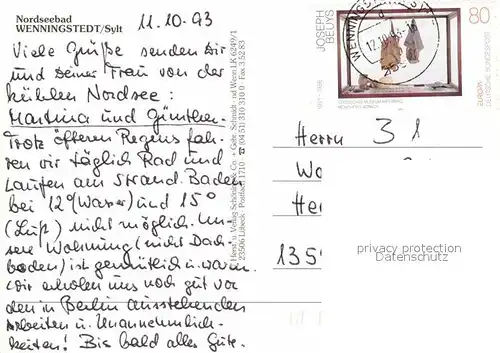 Nordseebad
WENNINGSTEDT/Sylt
11.10.93
Viele Grüße senden Dir
und seiner Frau von der
kühlen Nordsee:
Martina und Günther.
Trotz öfteren Regens fah-
ren wir täglich Rad und
Laufen am Strand. Baden
bei 12° (Wasser) und 15°
(Luft) nicht möglich. Un-
sere Wohnung (nicht Dach-
boden) ist gemütlich u. warm.
Wir erholen uns noch gut vor
den in Berlin ausstehenden
Arbeiten u. Unannehmlich-
keiten! Bis bald alles Gute.
Herst. u. Verlag Schöning & Co. + Gebr. Schmidt
23506 Lübeck · Postfach 1710 · ☎ (0451) 310 310 · Fax 3 52 83
JOSEPH
BEUYS
80
EUROPA
DEUTSCHE BUNDESPOST
WENNINGST
12.10.93
Herrn
Wo
He
135
privacy protection
Datenschutz